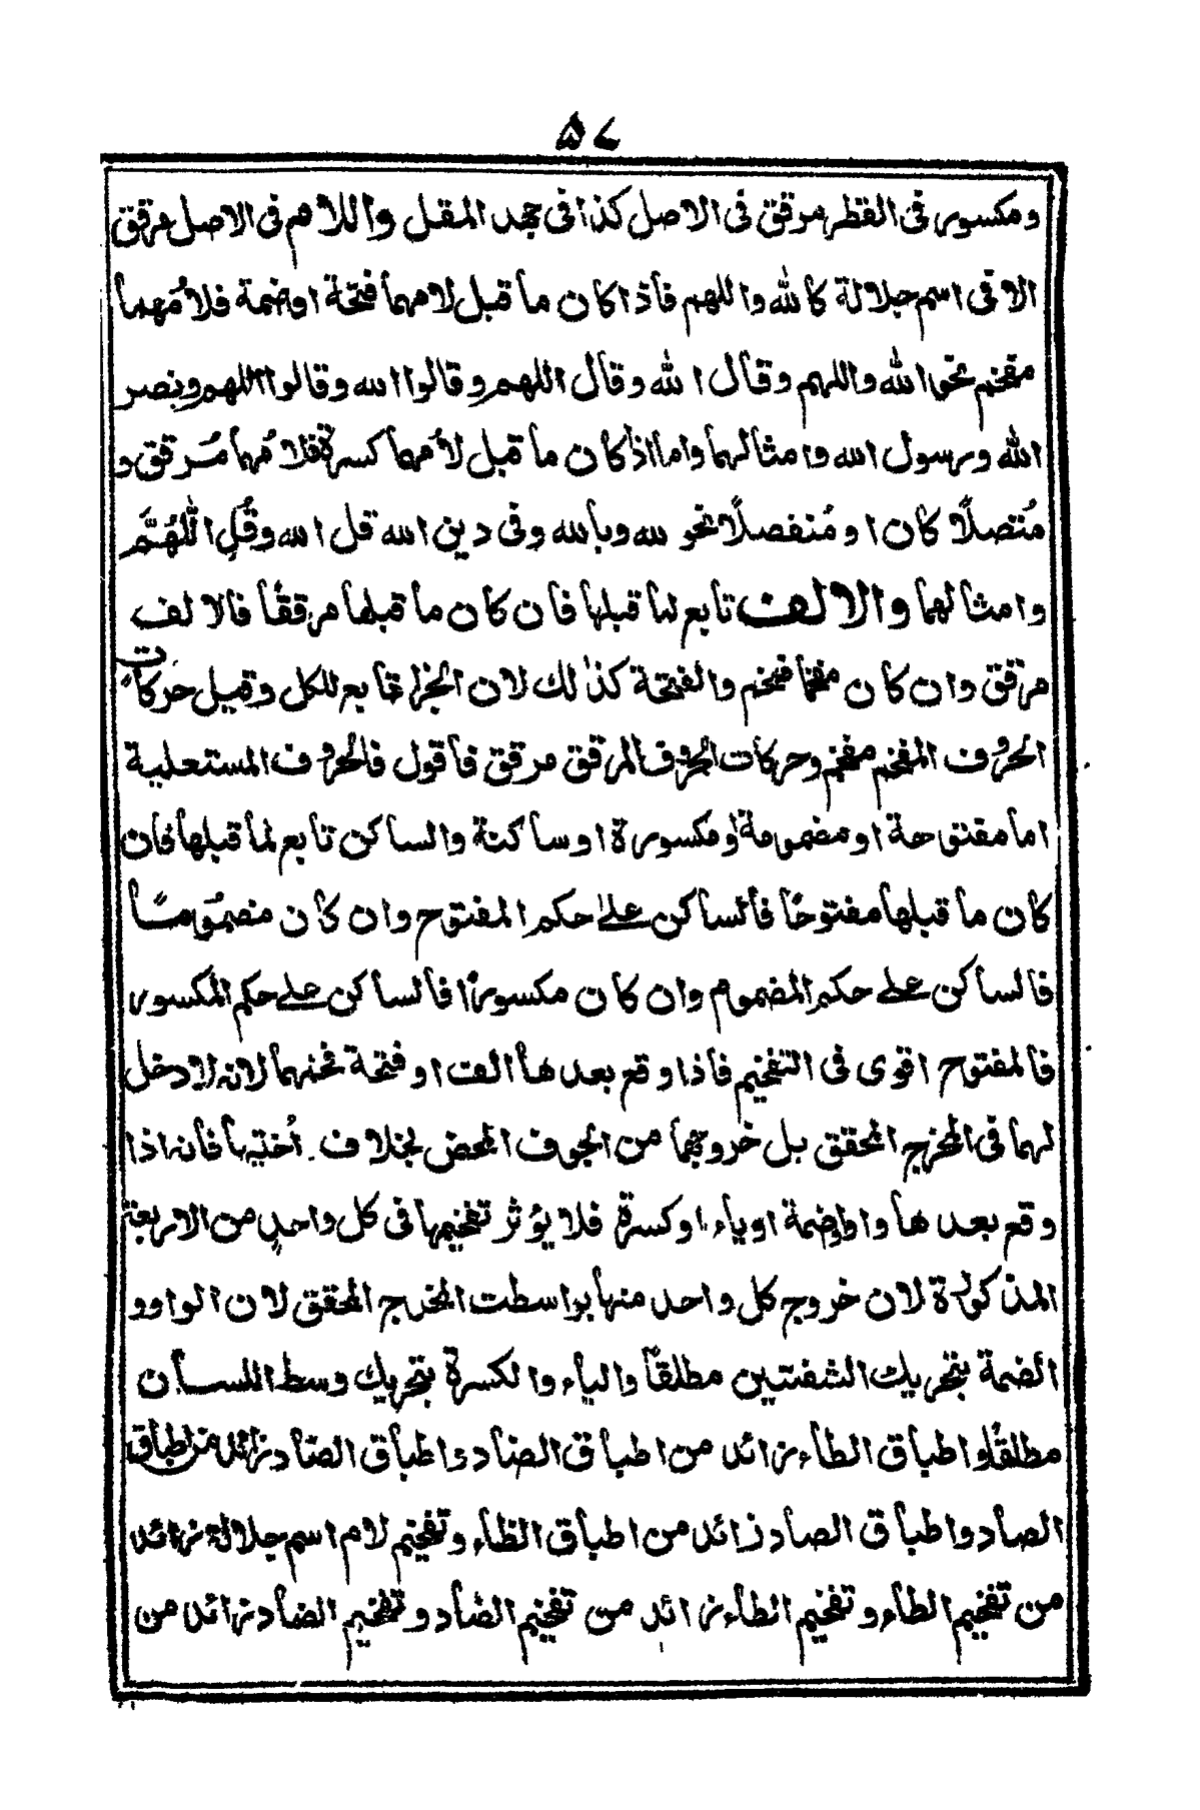 ٥٧
ومكسور فى القطر مرقق فى الاصل كذا فى جهد المقل واللام فى الاصل مرقق
الا فى اسم جلالة كالله واللهم فاذا كان ما قبل لامهما فتحة اوضمة فلامُهما
مفخم نحو الله واللهم وقال الله وقال اللهم وقالوا الله وقالوا اللهم وبنصر
الله ورسول الله وامثالهما واما اذا كان ما قبل لامهما كسرة فلامُهما مُرقق و
مُتصلًا كان او مُنفصلًا نحو لله وبالله وفى دين الله قل الله وقُلِ اللّٰهُمَّ
وامثالهما والالف تابع لما قبلها فان كان ما قبلها مرققًا فالالف
مرقق وان كان مفخما فمفخم والفتحة كذٰلك لان الجزء تابع للكل وقيل حركات
الحروف المفخم مفخم وحركات الحروف المرقق مرقق فاقول فالحروف المستعلية
اما مفتوحة او مضمومة او مكسورة او ساكنة والساكن تابع لما قبلها فان
كان ما قبلها مفتوحًا فالساكن علىٰ حكم المفتوح وان كان مضمُومًا
فالساكن على حكم المضموم وان كان مكسورًا فالساكن على حكم المكسور
فالمفتوح اقوى فى التفخيم فاذا وقع بعدها الف او فتحة فخهما لانه لا دخل
لهما فى المخرج المحقق بل خروجهما من الجوف المحض بخلاف اُختيها فانه اذا
وقع بعدها واو اوضمة اوياء اوكسرة فلا يؤثر تفخيمها فى كل واحدٍ من الاربعة
المذكورة لان خروج كل واحد منها بواسطت المخرج المحقق لان الواوو
الضمة بتحريك الشفتين مطلقًا والياء والكسرة بتحريك وسط اللسان
مطلقًا واطباق الطاء زائد من اطباق الضاد واطباق الضاد زائد من اطباق
الصاد واطباق الصاد زائد من اطباق الظاء وتفخيم لام اسم جلالة زائد
من تفخيم الطاء وتفخيم الطاء زائد من تفخيم الضاد وتفخيم الضاد زائد من